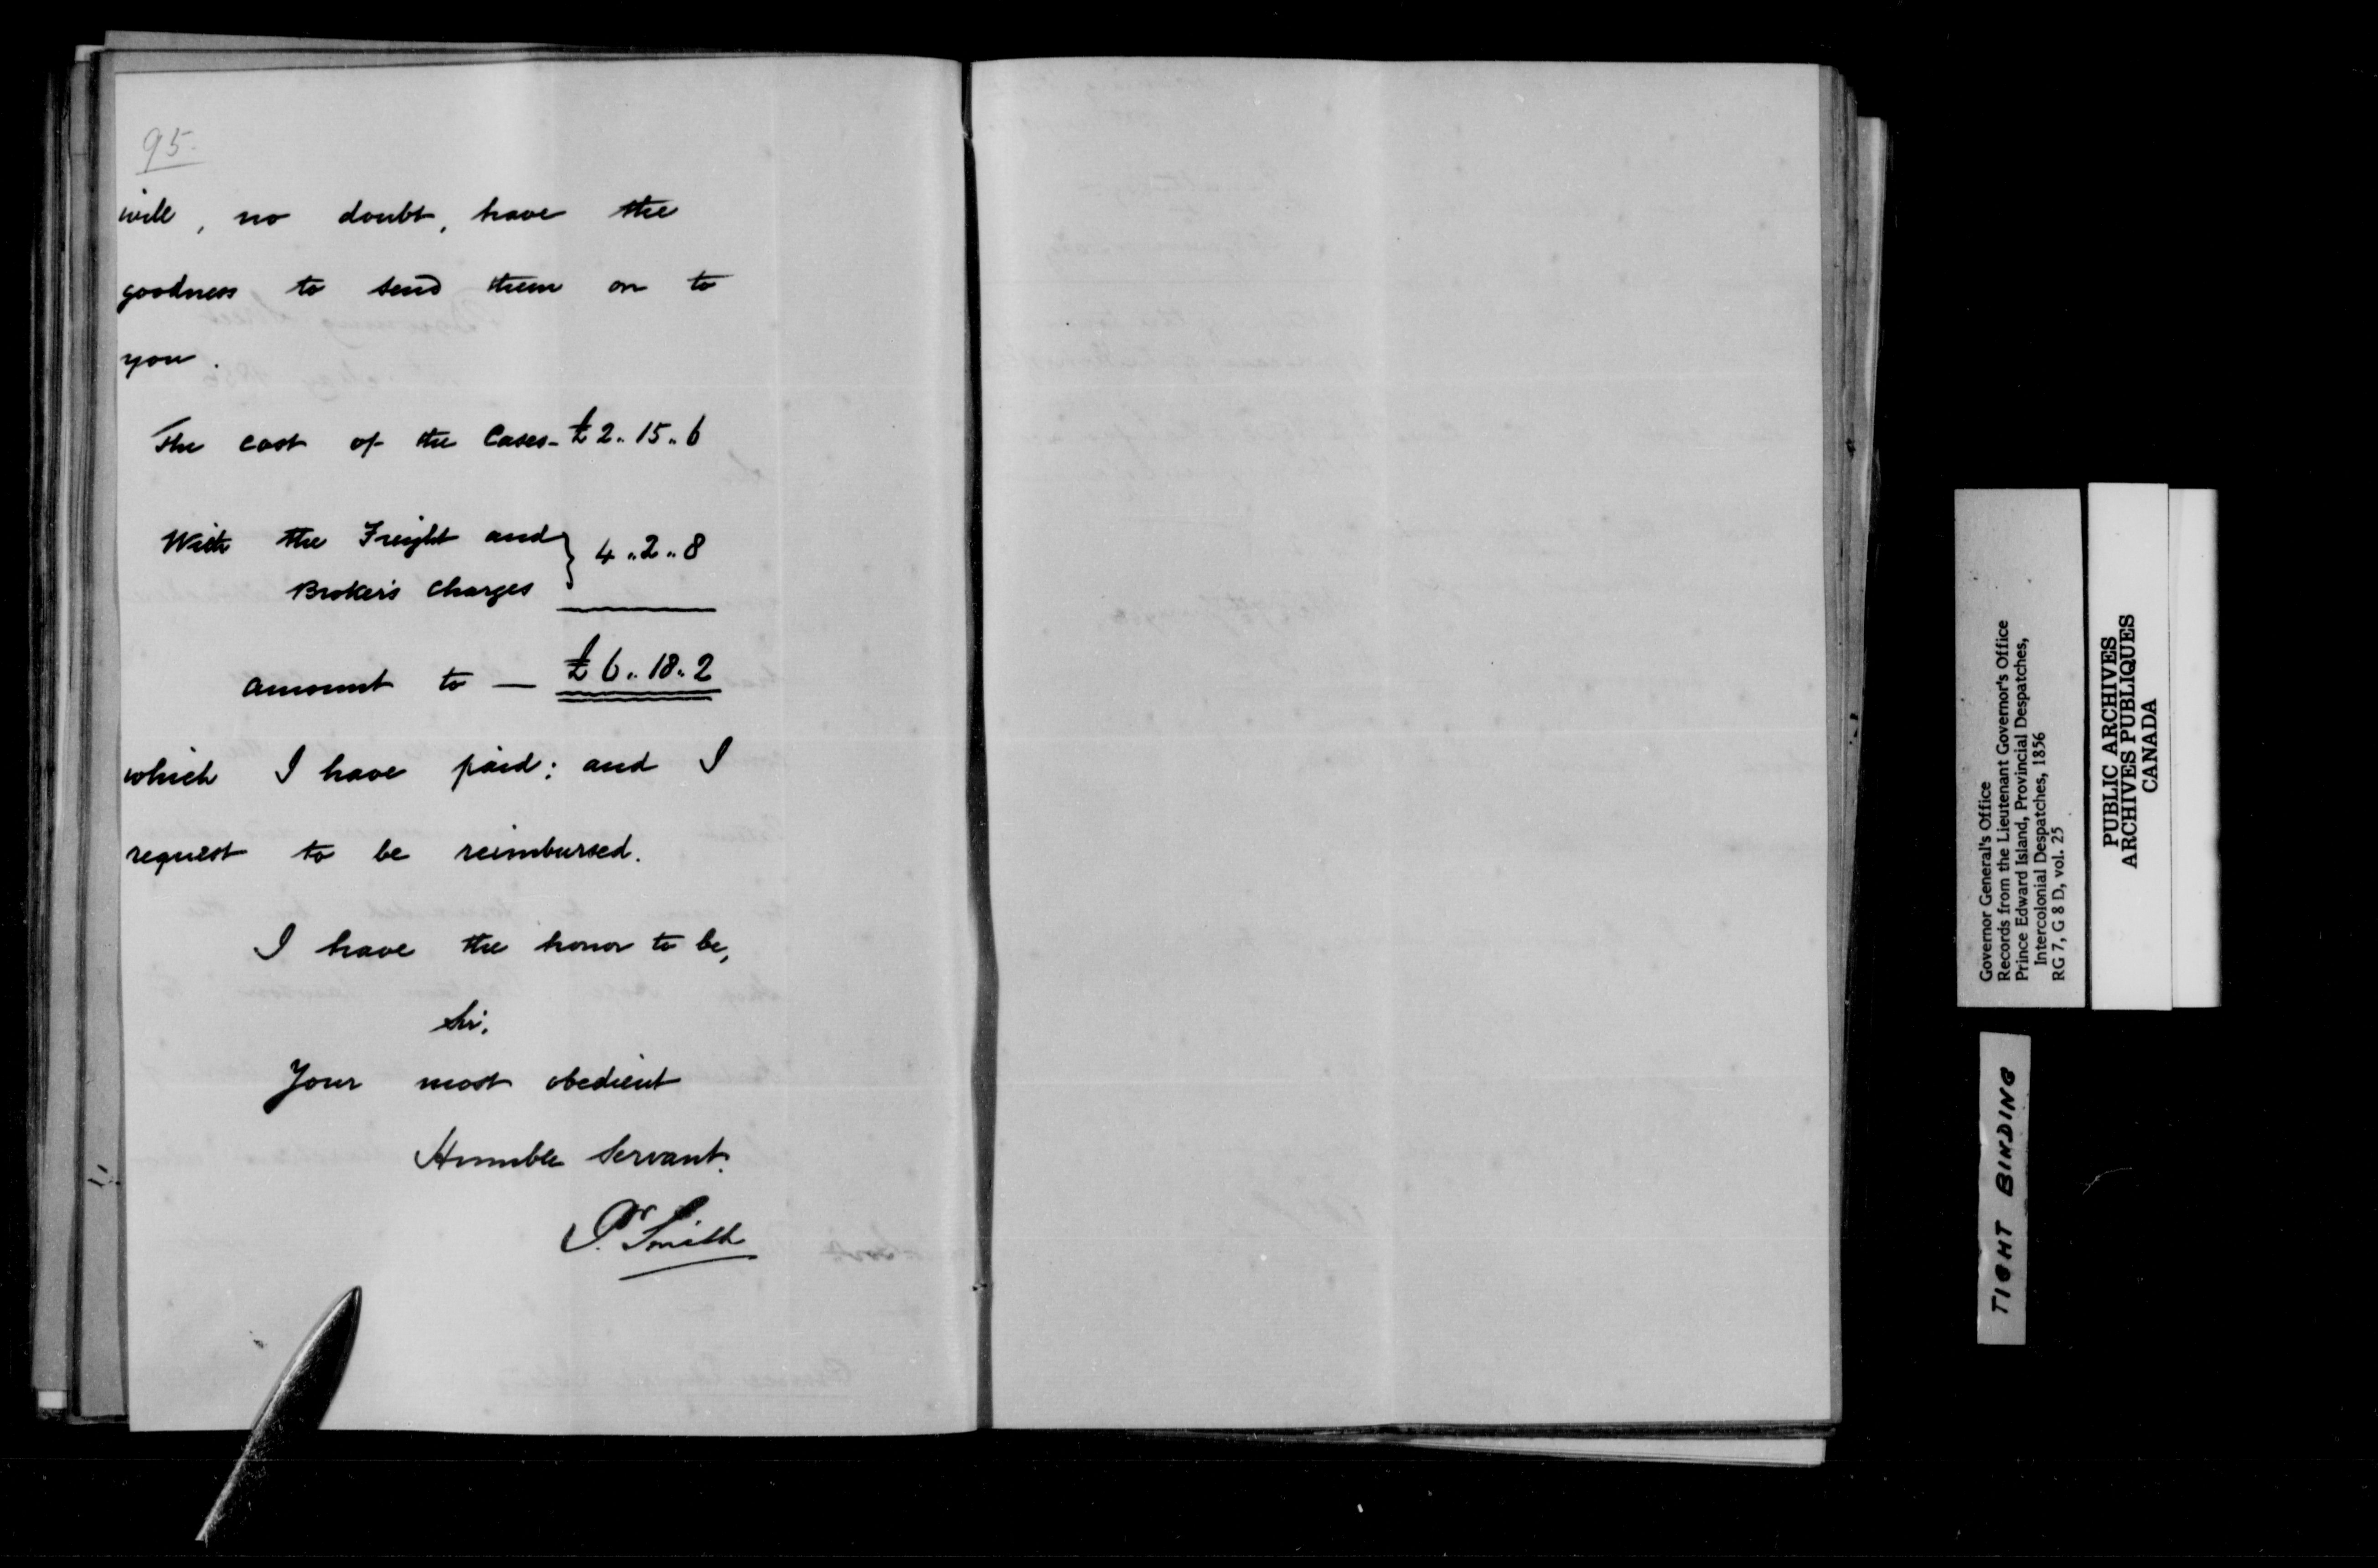 95.
will, no doubt, have the
goodness to send them on to
you.
The cost of the Cases - £2.. 15.. 6
With the Freight and } 4..2..8
Broker's Charges
amount to — £6.. 18.. 2
which I have paid; and I
request to be reimbursed.
I have the honor to be,
Sir,
Your most obedient
Humble Servant.
Pr. Smith
Governor General's Office
Records from the Lieutenant Governor's Office
Prince Edward Island, Provincial Despatches,
Intercolonial Despatches, 1856
RG 7, G 8 D, vol. 25
PUBLIC ARCHIVES
ARCHIVES PUBLIQUES
CANADA
TIGHT BINDING